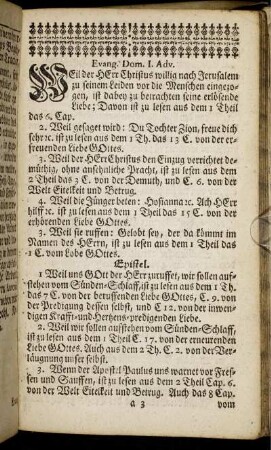 Evang. Dom. I. Adv.
WEil der HErr Christus willig nach Jerusalem
zu seinem Leiden vor die Menschen eingezo-
gen, ist dabey zu betrachten seine erlösende
Liebe; Davon ist zu lesen aus dem 1 Theil
das 6. Cap.
2. Weil gesaget wird: Du Tochter Zion, freue dich
sehr ꝛc. ist zu lesen aus dem 1 Th. das 13 C. von der er-
freuenden Liebe GOttes.
3. Weil der HErr Christus den Einzug verrichtet de-
müthig, ohne ansehnliche Pracht, ist zu lesen aus dem
2 Theil das 3 C. von der Demuth, und C. 6. von der
Welt Eitelkeit und Betrug.
4. Weil die Jünger beten: Hosianna ꝛc. Ach HErr
hilff ꝛc. ist zu lesen aus dem 1 Theil das 15 C. von der
erhörenden Liebe GOttes.
5. Weil sie ruffen: Gelobt sey, der da kömmt im
Namen des HErrn, ist zu lesen aus dem 1 Theil das
C. vom Lobe GOttes.
Epistel.
1 Weil uns GOtt der HErr zuruffet, wir sollen auf-
stehen vom Sünden-Schlaff, ist zu lesen aus dem 1 Th.
das 7 C. von der beruffenden Liebe GOttes, C. 9. von
der Predigung dessen selbst, und C 12. von der inwen-
digen Krafft- und Hertzens-predigenden Liebe.
2. Weil wir sollen aufstehen vom Sünden-Schlaff,
ist zu lesen aus dem 1 Theil C. 17. von der erneurenden
Liebe GOttes. Auch aus dem 2 Th. C. 2. von der Ver-
läugnung unser selbst.
3. Wenn der Apostel Paulus uns warnet vor Fres-
sen und Sauffen, ist zu lesen aus dem 2 Theil Cap. 6.
von der Welt Eitelkeit und Betrug. Auch das 8 Cap.
a 3 vom